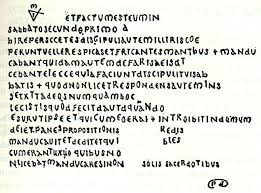 ETFACTUMESTEUMIN
SABBATOSECUNDEPRIMO À
BIREPERSCCETESDISGIPULIAUTEMILLIRISCOE
PERUNTVELLERESPICASETFRICANTESMANTBUS + MANDU
CABANTQUIDAMAUTEMDEFARISAEISDT
CEBANTELECCEQUIAFACIUNTDISCIPULITUISAB
BATIS + QUODNONLICETRESPONDENSAUTEMINS
SETXTADEOSNUMQUAMHOC
LECISTISQUODFECITDAUTDQUANDO
ESURUTIPSEETQUICUMEOERAT + INTROIBITINDOMUM
DEIETPANESPROPOSITIONIS REDIS
MANDUCAUITETDEDITETQUI BLES
CUMERANT QUIBUSNO
NLICEBATMANDUCARESINON SOLIS SACERDOTIBUS